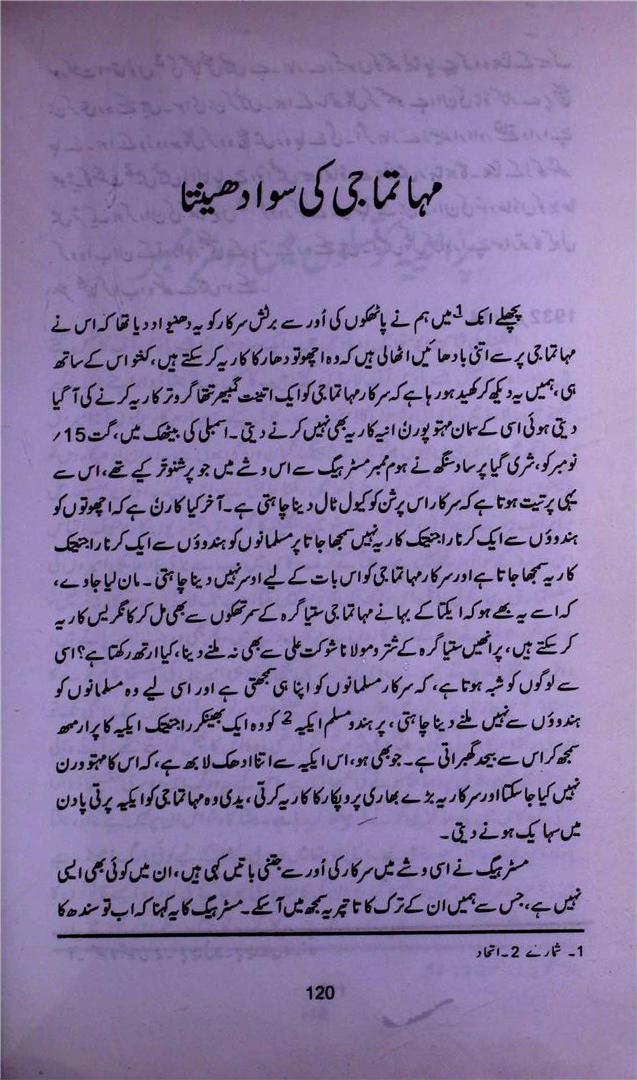 مہاتما جی کی سوادھینتا
پچھلے انک 1 میں ہم نے پاٹھکوں کی اُور سے برٹش سرکار کو یہ دھنیواد دیا تھا کہ اس نے
مہاتما جی پر سے اتنی بادھائیں اٹھالی ہیں کہ وہ اچھوتو دھار کا کاریہ کر سکتے ہیں، کنتو اس کے ساتھ
ہی، ہمیں یہ دیکھ کر کھید ہو رہا ہے کہ سرکار مہاتما جی کو ایک اتینت گمبھیر تتھا گروتر کاریہ کرنے کی آگیا
دیتی ہوئی اسی کے سمان مہتوپورن انیہ کاریہ بھی نہیں کرنے دیتی۔ اسمبلی کی بیٹھک میں، گت 15/
نومبر کو، شری گیا پرساد سنگھ نے ہوم ممبر مسٹر ہیگ سے اس وشے میں جو پرشنوتر کیے تھے، اس سے
یہی پرتیت ہوتا ہے کہ سرکار اس پرشن کو کیول ٹال دینا چاہتی ہے۔ آخر کیا کارن ہے کہ اچھوتوں کو
ہندوؤں سے ایک کرنا راجنیتک کاریہ نہیں سمجھا جاتا پر مسلمانوں کو ہندوؤں سے ایک کرنا راجنیتک
کاریہ سمجھا جاتا ہے اور سرکار مہاتما جی کو اس بات کے لیے اوسر نہیں دینا چاہتی۔ مان لیا جاوے،
کہ اسے یہ بھے ہو کہ ایکتا کے بہانے مہاتما جی ستیاگرہ کے سمرتھکوں سے بھی مل کر کانگریس کاریہ
کر سکتے ہیں، پر انھیں ستیاگرہ کے شترو مولانا شوکت علی سے بھی نہ ملنے دینا، کیا ارتھ رکھتا ہے؟ اسی
سے لوگوں کو شبہ ہوتا ہے، کہ سرکار مسلمانوں کو اپنا ہی سمجھتی ہے اور اسی لیے وہ مسلمانوں کو
ہندوؤں سے نہیں ملنے دینا چاہتی، پر ہندو مسلم ایکیہ 2 کو وہ ایک بھینکر راجنیتک ایکیہ کا پرارمبھ
سمجھ کر اس سے بیحد گھبراتی ہے۔ جو بھی ہو، اس ایکیہ سے اتنا ادھک لابھ ہے، کہ اس کا مہتو ورن
نہیں کیا جا سکتا اور سرکار یہ بڑے بھاری پروپکار کا کاریہ کرتی، یدی وہ مہاتما جی کو ایکیہ پرتی پادن
میں سہایک ہونے دیتی۔
مسٹر ہیگ نے اسی وشے میں سرکار کی اُور سے جتنی باتیں کہی ہیں، ان میں کوئی بھی ایسی
نہیں ہے، جس سے ہمیں ان کے ترک کا تاتپریہ سمجھ میں آ سکے۔ مسٹر ہیگ کا یہ کہنا کہ اب تو سندھ کا
1۔ شمارے 2۔ اتحاد
120